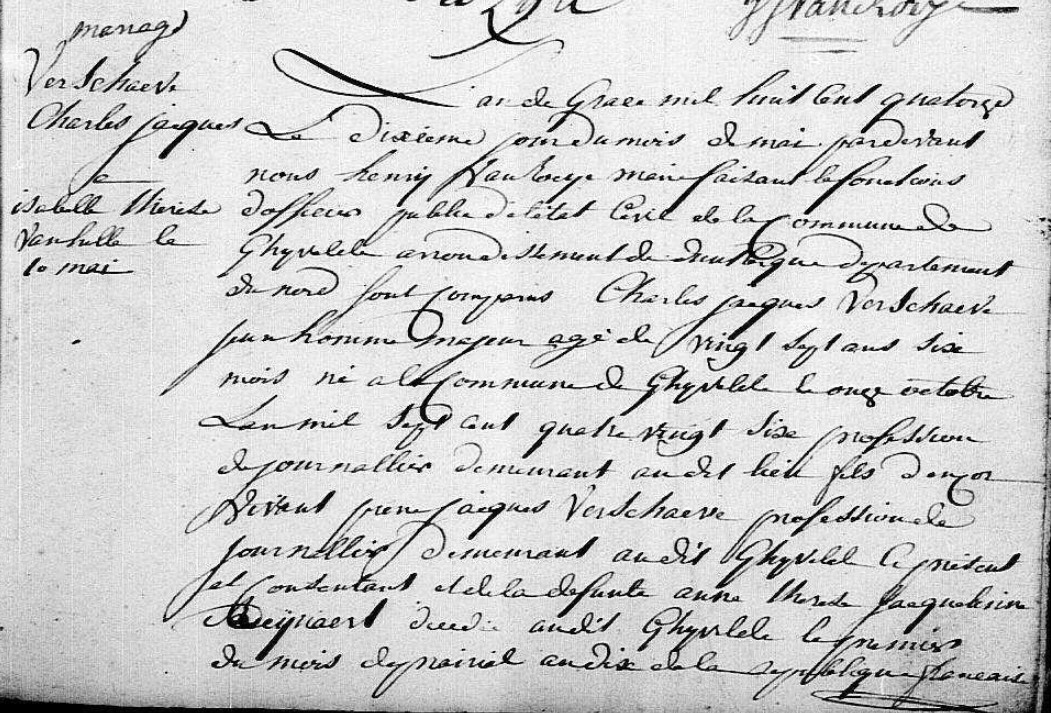 mariage
Verschaeve
Charles jacques
e
isabelle therese
Vanhille le
10 mai
L'an de Grace mil huit Cent quatorze
Le dixieme jour du mois de mai pardevant
nous henry Vanrooye maire faisant le fonctions
d'officier public d'eletat Civil de la Commune de
Ghyvelde arrondissement de dunkerque departement
du nord sont Comparus Charles jacques Verschaeve
jeun homme majeur agé de vingt sept ans six
mois né a la Commune de Ghyvelde le onze octobre
L'an mil sept Cent quatre vingt six profession
de journallier demeurant au dit lieu fils d'encor
vivant jacques Verschaeve profession de
journallier demeurant au dit Ghyvelde Ce present
et Consentant et de la defunte anne therese jacquelinne
decede au dit Ghyvelde le premier
du mois de prairial an dix de la republique francaise